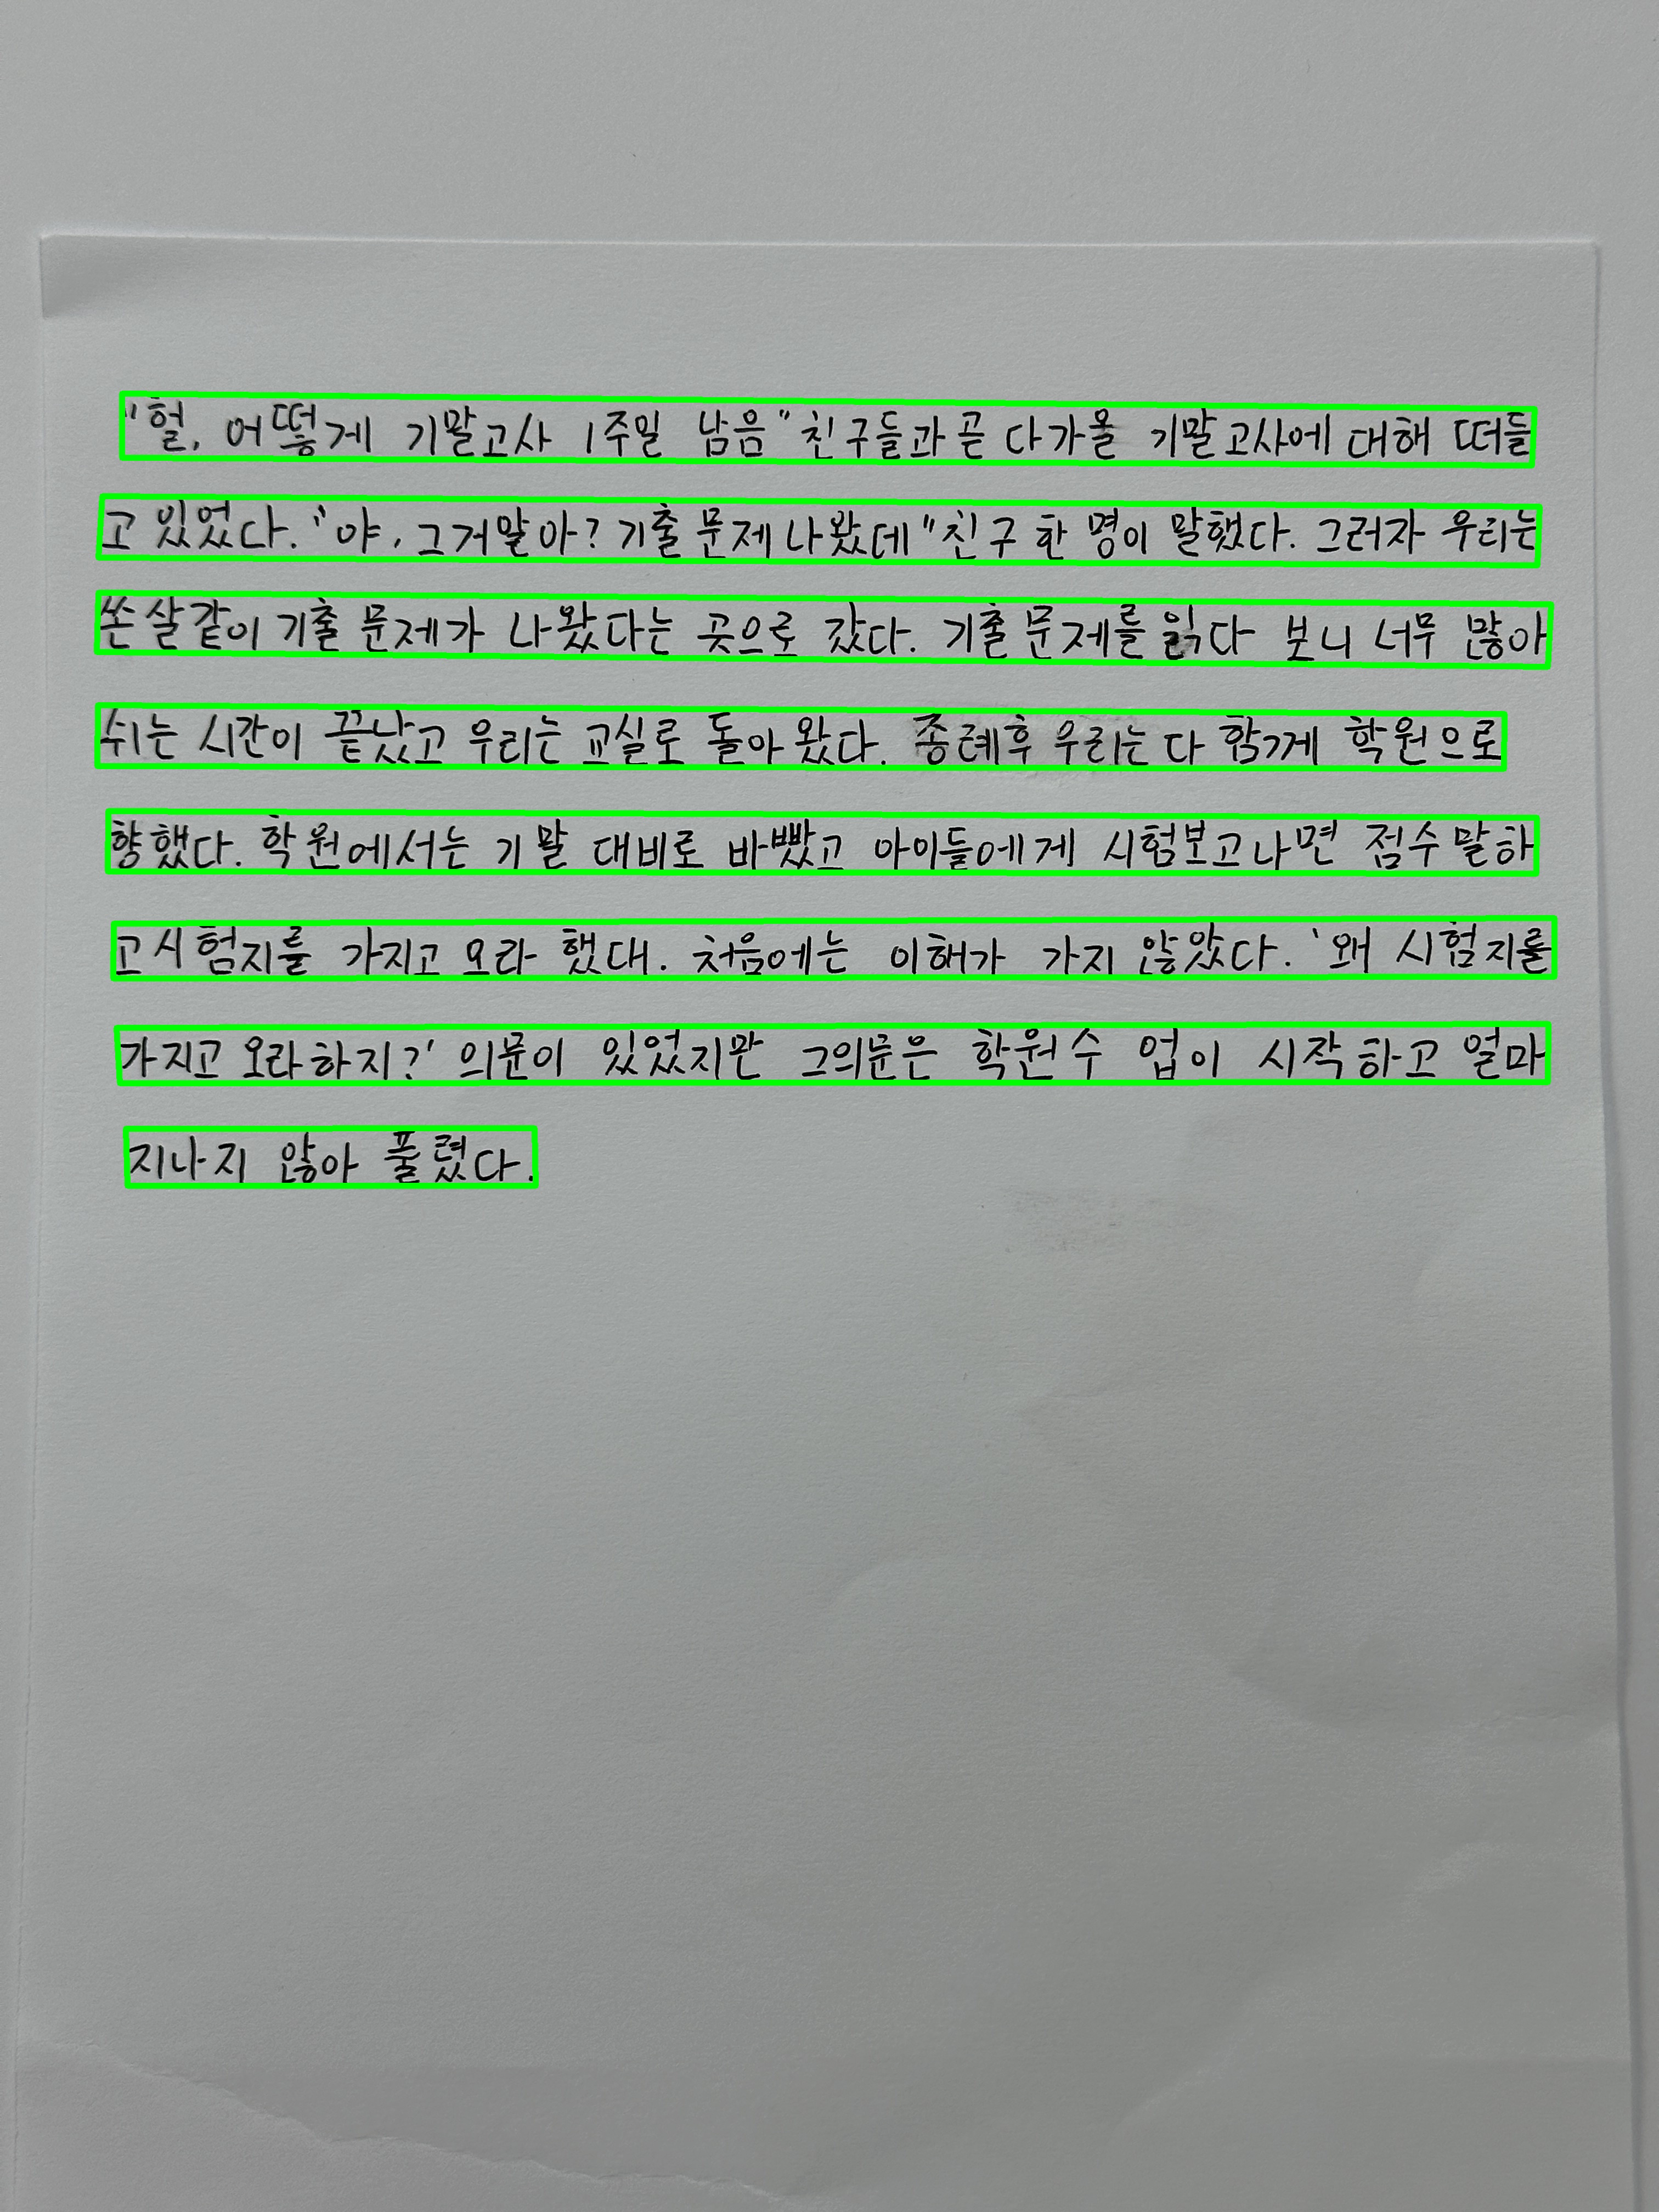 "헐, 어떻게 기말고사 1주일 남음" 친구들과 곧 다가올 기말고사에 대해 떠들
고 있었다. "야, 그거말아? 기출 문제 나왔데" 친구 한 명이 말했다. 그러자 우리는
쏜살같이 기출 문제가 나왔다는 곳으로 갔다. 기출 문제를 읽다 보니 너무 많아
쉬는 시간이 끝났고 우리는 교실로 돌아 왔다. 종례후 우리는 다 함께 학원으로
향했다. 학원에서는 기말 대비로 바빴고 아이들에게 시험보고나면 점수 말하
고 시험지를 가지고 오라 했대. 처음에는 이해가 가지 않았다. '왜 시험지를
가지고 오라하지?' 의문이 있었지만 그의문은 학원수 업이 시작하고 얼마
지나지 않아 풀렸다.